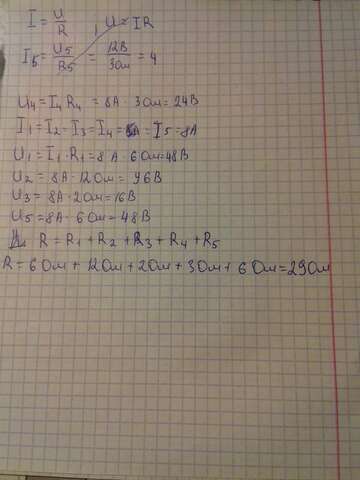 I = U/R , U = IR
I5 = U5/R5 = 12В/3Ом = 4
U4 = I4 R4 = 8А · 3Ом = 24В
I1 = I2 = I3 = I4 = I5 = 8А
U1 = I1 · R1 = 8А · 6Ом = 48В
U2 = 8А · 12Ом = 96В
U3 = 8А · 2Ом = 16В
U5 = 8А · 6Ом = 48В
R = R1 + R2 + R3 + R4 + R5
R = 6Ом + 12Ом + 2Ом + 3Ом + 6Ом = 29Ом